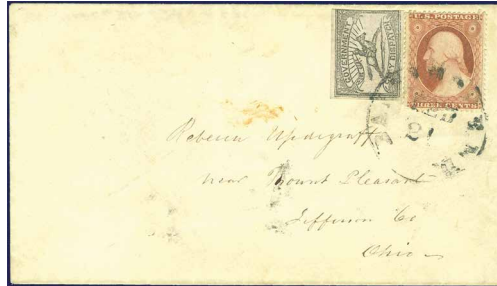 GOVERNMENT
U.S. POSTAGE
THREE CENTS
Rebecca Updegraff
near Mount Pleasant
Jefferson Co
Ohio